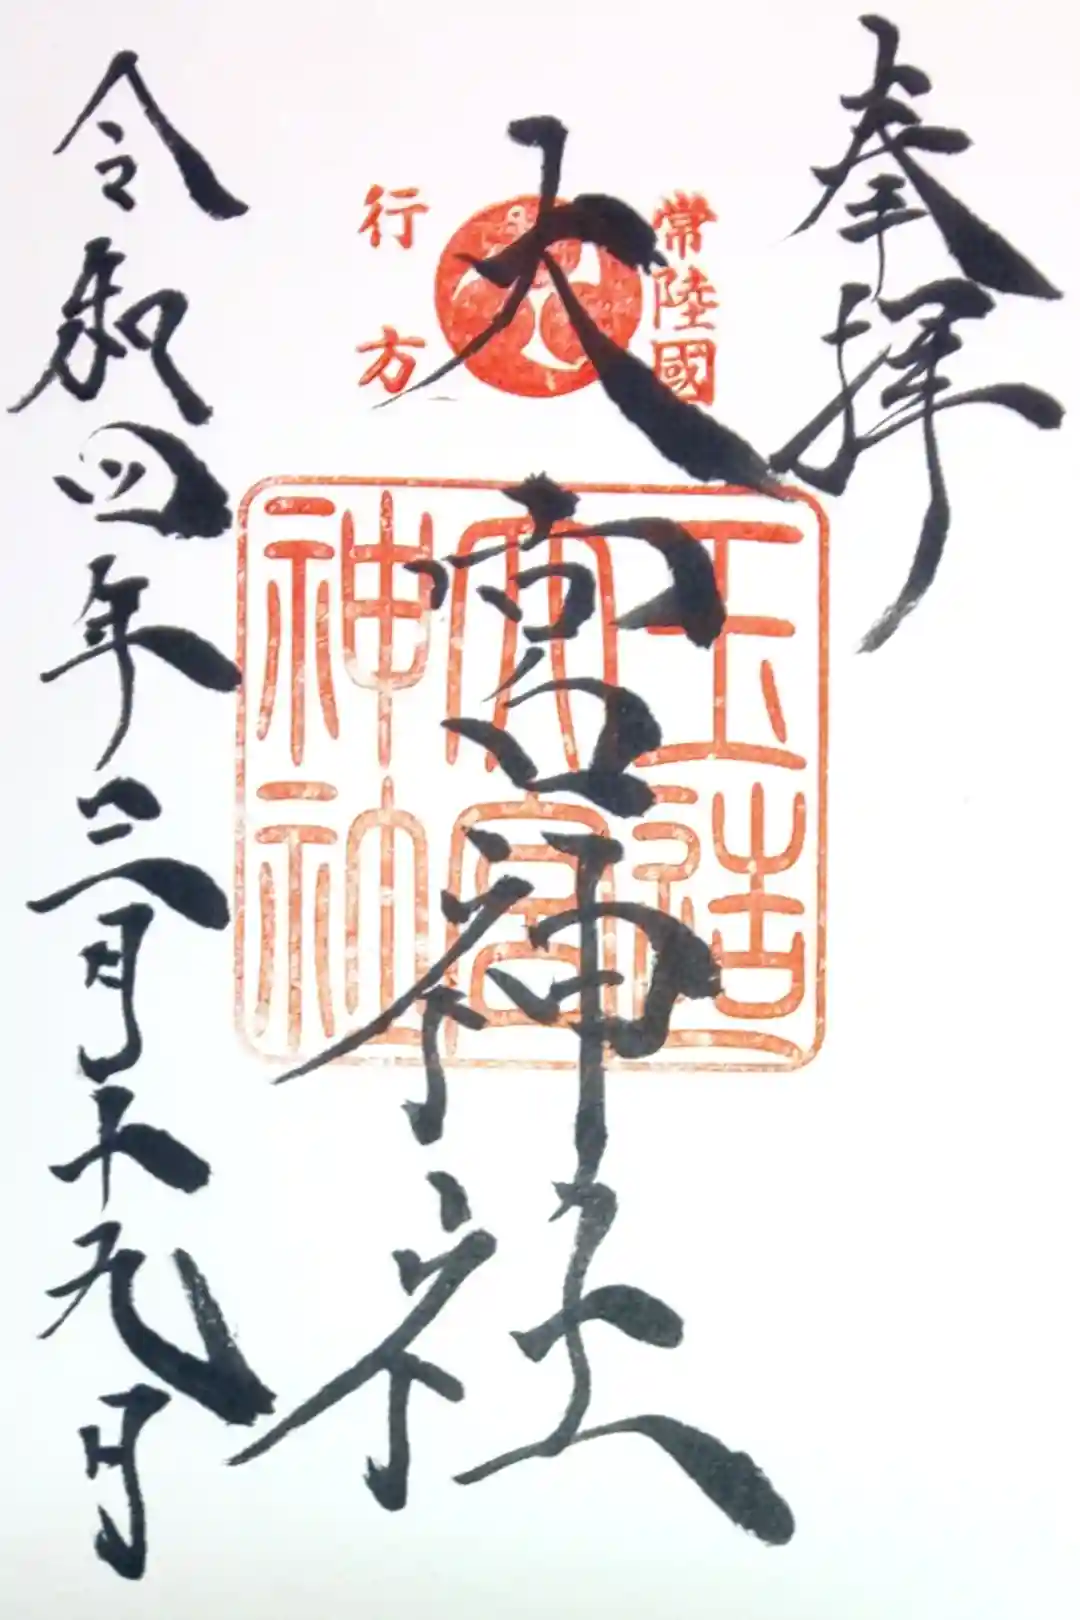 奉拝
常陸國
行方
大宮神社
玉造
大宮
神社
令和四年三月十九日